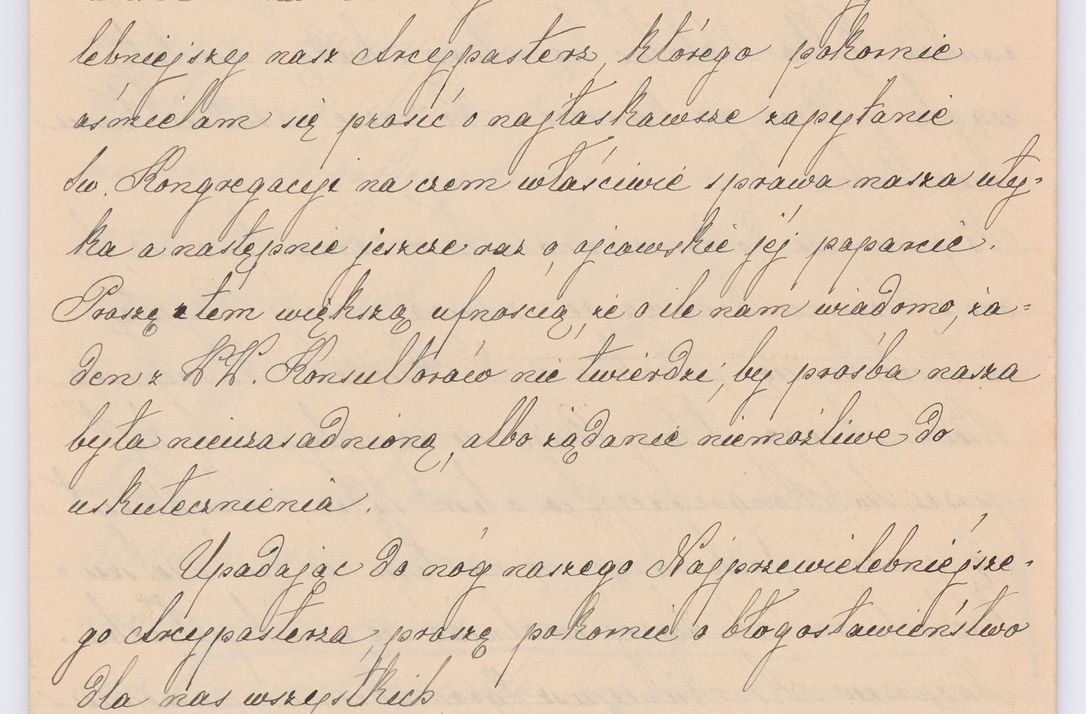 lebniejszy nasz Arcypasterz, którego pokornie
ośmielam się prosić o najłaskawsze zapytanie
Św. Kongregacyi na czem właściwie sprawa nasza uty-
ka a następnie jeszcze raz o ojcowskie jéj poparcie.
Proszę z tem większą ufnością, że o ile nam wiadomo, ża-
den z WW. Konsultorów nie twierdzi, by prośba nasza
była nieuzasadnioną, albo żądanie niemożliwe do
uskutecznienia.
Upadając do nóg naszego Najprzewielebniéjsze-
go Arcypasterza, proszę pokornie o błogosławieństwo
dla nas wszystkich